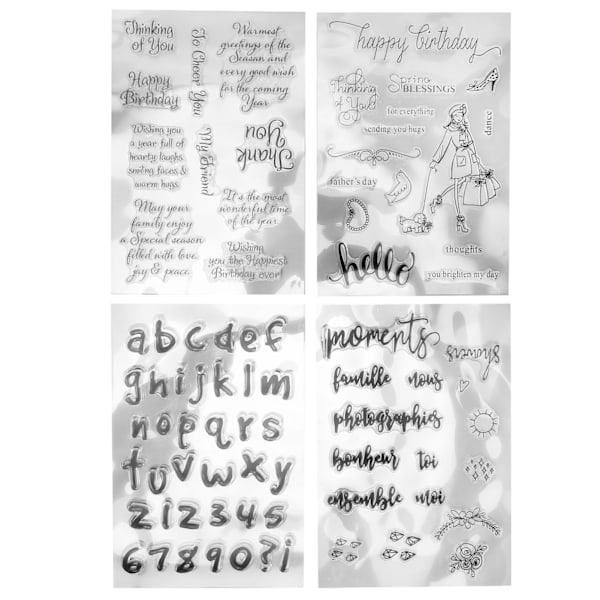 Thinking
of You
To Cheer You
Warmest
greetings of the
Season and
every good wish
for the coming
Year
Happy
Birthday
My Friend
Thank
You
Wishing you
a year full of
hearty laughs,
smiling faces &
warm hugs.
It's the most
wonderful time
of the year.
May your
family enjoy
a Special season
filled with love,
joy & peace.
Wishing
you the Happiest
Birthday ever!
happy birthday
Thinking
of You
Spring
BLESSINGS
for everything
sending you hugs
dance
father's day
hello
thoughts
you brighten my day
a b c d e f
g h i j k l m
n o p q r s
t u v w x y z
2 1 2 3 4 5
6 7 8 9 0 ? i
moments
showers
famille nous
photographies
bonheur toi
ensemble moi